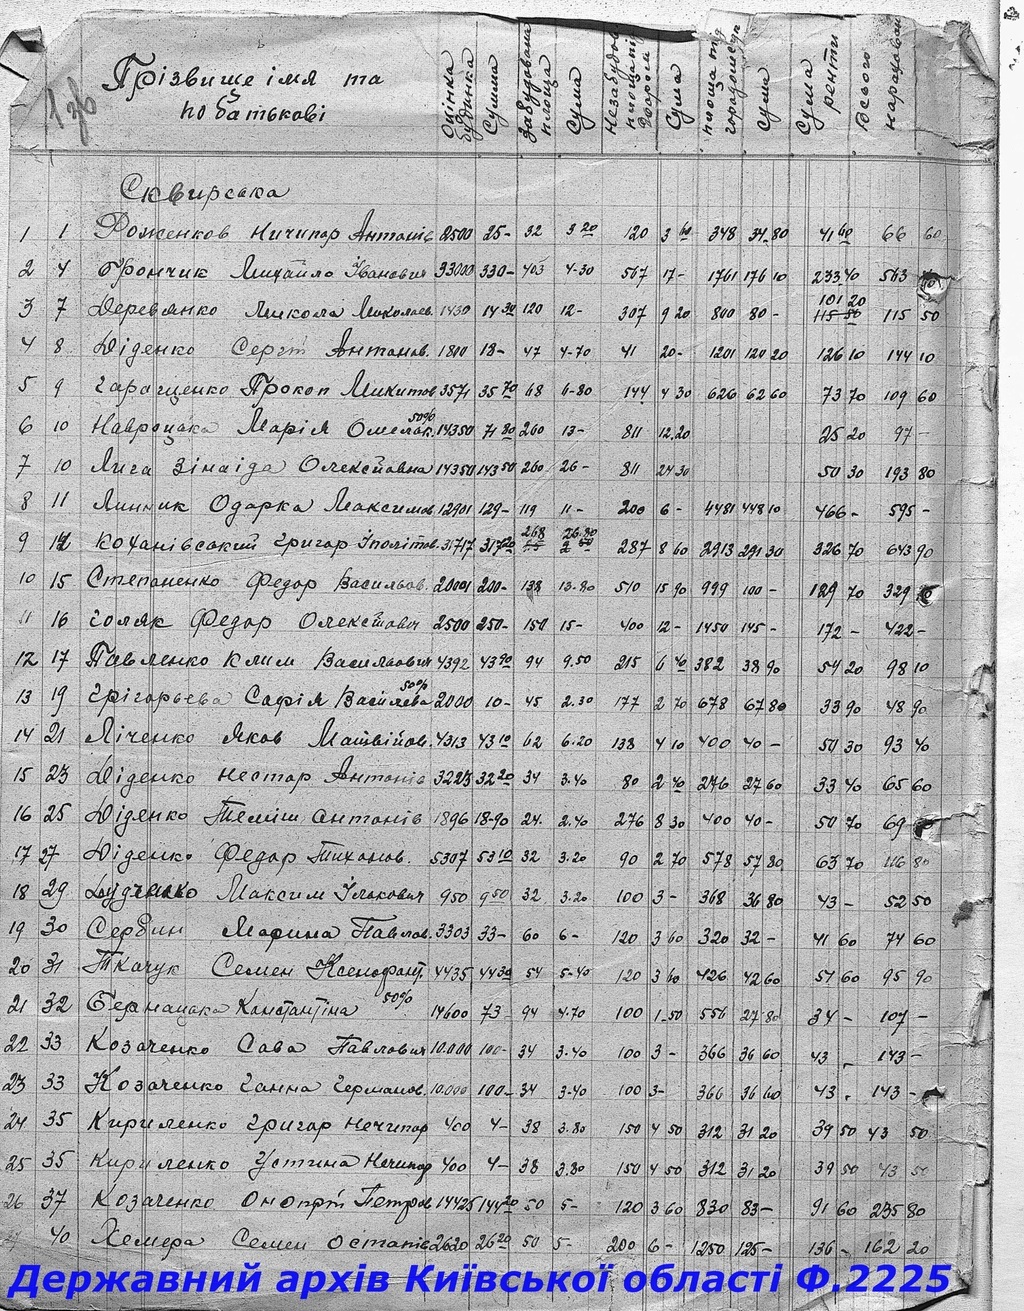 Прізвище імя та
по батькові
Оцінка будинка
Сумма
Забудована площа
Сума
Незабудов площа під двором
Сума
площа під городом
Сума
Сума ренти
Всього нараховано
Сквирська
1 1 Роженков Ничипор Антонів 2500 25- 32 3 20 120 3 60 348 34.80 41 60 66 60
2 4 Грончик Михайло Іванович 33000 330- 403 4-30 567 17- 1761 176 10 233 40 563
3 7 Деревянко Микола Миколаев. 1430 14 30 120 12- 307 9 20 800 80- 101 20 115 50 115 50
4 8 Діденко Сергій Антонов. 1800 18- 47 4-70 41 20- 1201 120 20 126 10 144 10
5 9 Гаращенко Прокоп Микитов 3571 35 70 68 6-80 144 4 30 626 62 60 73 70 109 60
6 10 Навроцька Марія Омеляк. 50% 14350 71 80 260 13- 811 12.20 25 20 97-
7 10 Лига Зінаіда Олексіівна 14350 143 50 260 26- 811 24 30 50 30 193 80
8 11 Линник Одарка Максимов 12901 129- 119 11- 200 6- 4481 448 10 466- 595-
9 12 Кохановський Григор Іполітов. 31717 317 20 268 26.80 287 8 60 2913 291 30 326 70 643 90
10 15 Степаненко Федор Васильов. 20001 200- 138 13-80 510 15 90 999 100- 129 70 329
11 16 Голяк Федор Олексійович 2500 250- 150 15- 400 12- 1450 145- 172- 422-
12 17 Павленко Клим Васильович 4392 43 90 94 9.50 215 6 40 382 38 90 54 20 98 10
13 19 Грігорьева Софія Василева 50% 2000 10- 45 2.30 177 2 70 678 67 80 33 90 48 90
14 21 Ліченко Яков Матвійов. 4313 43 10 62 6.20 138 4 10 400 40- 50 30 93 40
15 23 Діденко Нестар Антонів 3223 32 20 34 3.40 80 2 40 276 27 60 33 40 65 60
16 25 Діденко Теміш Антонів 1896 18-90 24 2.40 276 8 30 400 40- 50 70 69
17 27 Діденко Федар Тиханов. 5307 53 10 32 3.20 90 2 70 578 57 80 63 70 116 80
18 29 Дудченко Максим Ількович 950 9 50 32 3.20 100 3- 368 36 80 43- 52 50
19 30 Сербин Марина Павлов. 3303 33- 60 6- 120 3 60 320 32- 41 60 74 60
20 31 Ткачук Семен Ксенофонт. 4435 44 30 54 5-40 120 3 60 426 42 60 51 60 95 90
21 32 Бернацька Константіна 50% 14600 73- 94 4.70 100 1.50 556 27 80 34- 107-
22 33 Козаченко Сава Павлович 10.000 100- 34 3.40 100 3- 366 36 60 43- 143-
23 33 Козаченко Ганна Германов. 10.000 100- 34 3-40 100 3- 366 36 60 43. 143-
24 35 Кириленко Григор Нечипор 400 4- 38 3.80 150 4 50 312 31 20 39 50 43 50
25 35 Кириленко Устина Нечипор 400 4- 38 3.80 150 4 50 312 31 20 39 50 43 50
26 37 Козаченко Онопрій Петров 14425 144 20 50 5- 120 3 60 830 83- 91 60 235 80
40 Хемера Семен Остапів 2620 26 20 50 5- 200 6- 1250 125- 136- 162 20
Державний архів Київської області Ф.2225